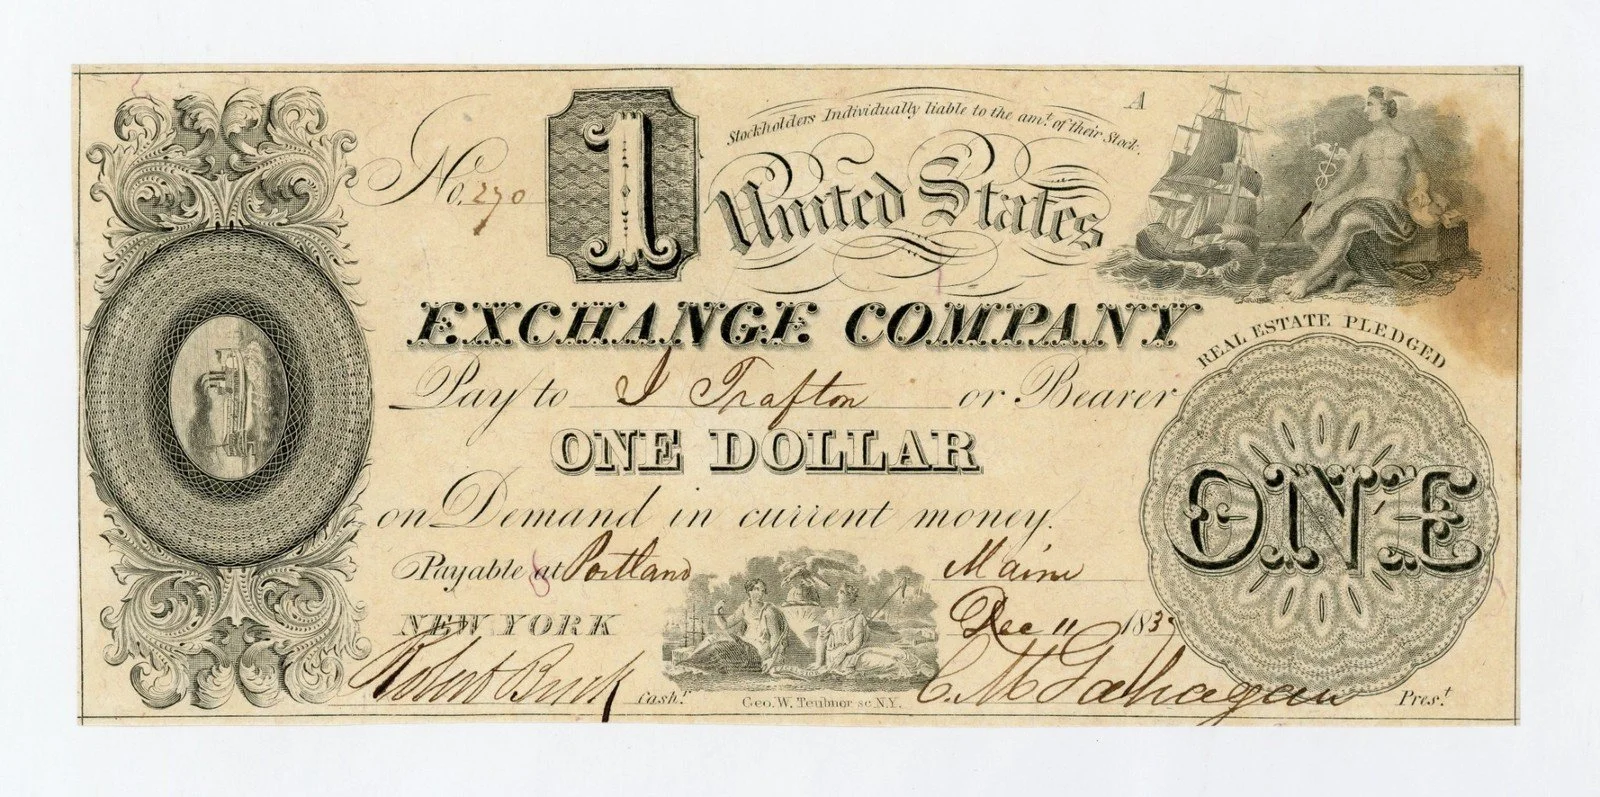 Stockholders Individually liable to the amt. of their Stock.
A
No. 270
1
United States
EXCHANGE COMPANY
REAL ESTATE PLEDGED
Pay to J Trafton or Bearer
ONE DOLLAR
ONE
on Demand in current money.
Payable at Portland Maine
NEW YORK Dec 11 1837
Robert Cash.r
Geo. W. Teubnor sc. N.Y.
C. M. Prest.